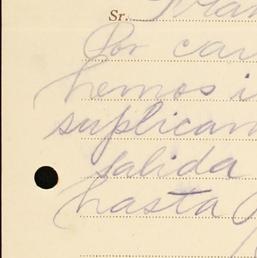 Sr.
Por cau
hemos i
suplicam
salida
hasta